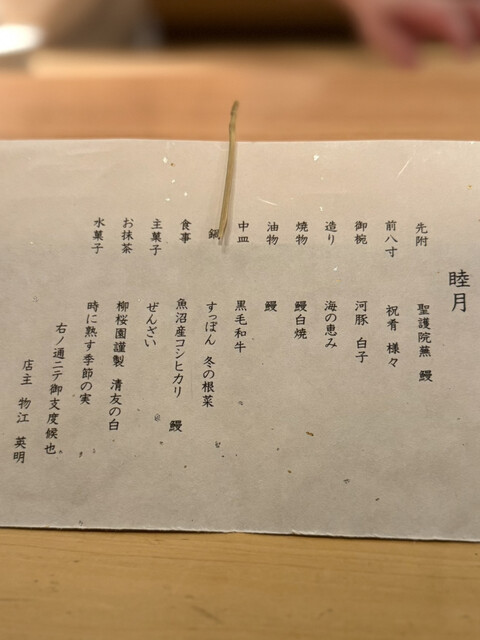 睦月
先附 聖護院蕪 鰻
前八寸 祝肴 様々
御椀 河豚 白子
造り 海の恵み
焼物 鰻白焼
油物 鰻
中皿 黒毛和牛
鍋 すっぽん 冬の根菜
食事 魚沼産コシヒカリ 鰻
主菓子 ぜんざい
お抹茶 柳桜園謹製 清友の白
水菓子 時に熟す季節の実
右ノ通ニテ御支度候也
店主 物江 英明